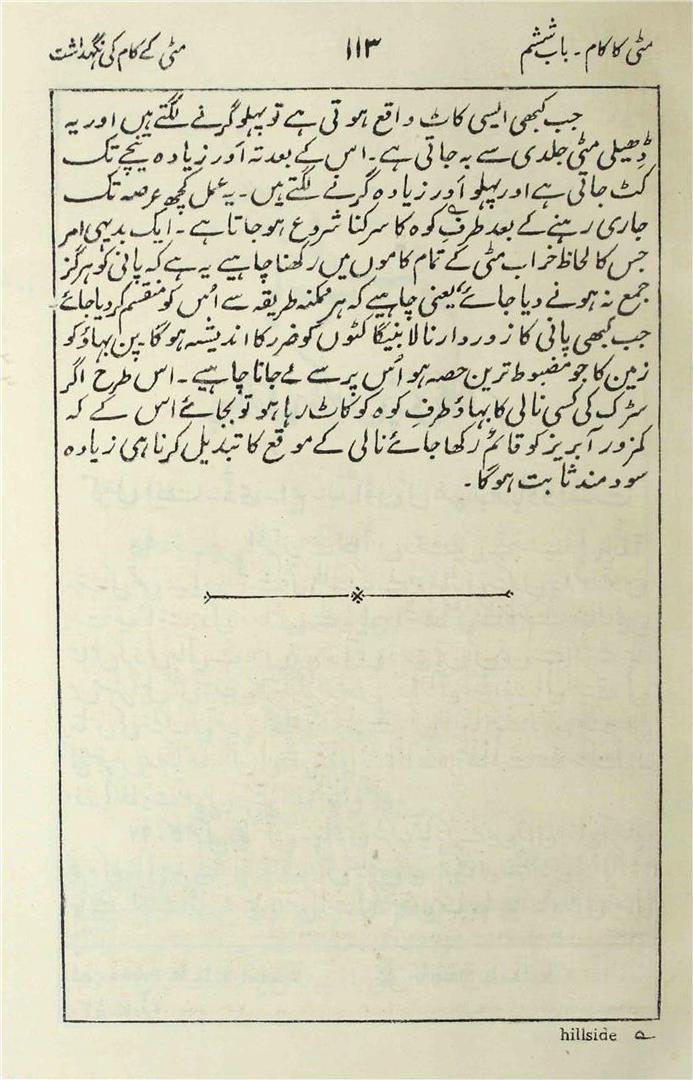 مٹی کا کام ۔ باب ششم
۱۱۳
مٹی کے کام کی نگہداشت
جب کبھی ایسی کاٹ واقع ہوتی ہے تو پہلو گرنے لگتے ہیں اور یہ
ڈھیلی مٹی جلدی سے بہ جاتی ہے۔ اس کے بعد تہ اَور زیادہ نیچے تک
کٹ جاتی ہے اور پہلو اَور زیادہ گرنے لگتے ہیں۔ یہ عمل کچھ عرصہ تک
جاری رہنے کے بعد طرفِ کوہ کا سرکنا شروع ہو جاتا ہے۔ ایک بدیہی امر
جس کا لحاظ خراب مٹی کے تمام کاموں میں رکھنا چاہیے یہ ہے کہ پانی کو ہرگز
جمع نہ ہونے دیا جائے، یعنی چاہیے کہ ہر ممکنہ طریقہ سے اُس کو منقسم کر دیا جائے۔
جب کبھی پانی کا زوردار نالا بنیگا کٹوں کو ضرر کا اندیشہ ہوگا۔ پن بہاؤ کو
زمین کا جو مضبوط ترین حصہ ہو اُس پر سے لے جانا چاہیے۔ اس طرح اگر
سڑک کی کسی نالی کا بہاؤ طرفِ کوہ کو کاٹ رہا ہو تو بجائے اس کے کہ
کمزور آبریز کو قائم رکھا جائے نالی کے موقع کا تبدیل کرنا ہی زیادہ
سود مند ثابت ہوگا۔
hillside